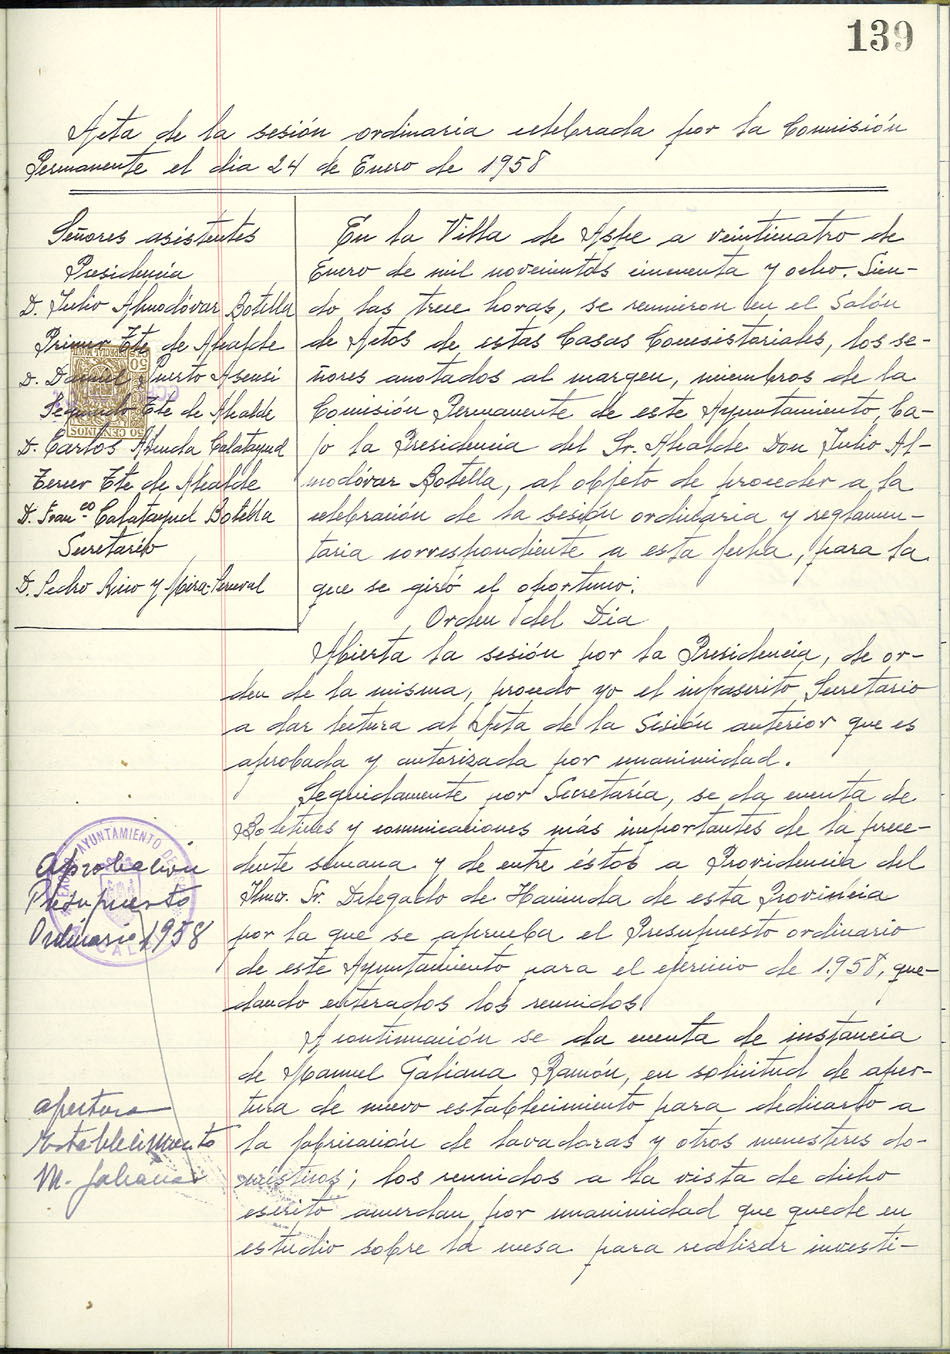 139
Acta de la sesión ordinaria celebrada por la Comisión
Permanente el dia 24 de Enero de 1958
Señores asistentes
Presidencia
D. Julio Almodóvar Botella
Primer Tte de Alcalde
D. Daniel Puerto Asensi
Segundo Tte de Alcalde
D. Carlos Calatayud
Tercer Tte de Alcalde
D. Franco Calatayud Botella
Secretario
D. Pedro Rico y Mira-Perceval
50 CENTIMOS 50
En la Villa de Aspe a veinticuatro de
Enero de mil novecientos cincuenta y ocho. Sien-
do las trece horas, se reunieron en el Salón
de Actos de estas Casas Consistoriales, los se-
ñores anotados al margen, miembros de la
Comisión Permanente de este Ayuntamiento, ba-
jo la Presidencia del Sr. Alcalde Don Julio Al-
modóvar Botella, al objeto de proceder a la
celebración de la sesión ordinaria y reglamen-
taria correspondiente a esta fecha, para la
que se giró el oportuno:
Orden del Dia
Abierta la sesión por la Presidencia, de or-
den de la misma, procedo yo el infrascrito Secretario
a dar lectura al Acta de la Sesión anterior que es
aprobada y autorizada por unanimidad.
Seguidamente por Secretaría, se da cuenta de
Boletines y comunicaciones más importantes de la prece-
dente semana y de entre éstos a Providencia del
Ilmo. Sr. Delegado de Hacienda de esta Provincia
por la que se aprueba el Presupuesto ordinario
de este Ayuntamiento para el ejercicio de 1.958, que-
dando enterados los reunidos.
AYUNTAMIENTO DE
Aprobación
Presupuesto
Ordinario 1958
A continuación se da cuenta de instancia
de Manuel Galiana Ramón, en solicitud de aper-
tura de nuevo establecimiento para dedicarlo a
la fabricación de lavadoras y otros menesteres do-
mésticos; los reunidos a la vista de dicho
escrito acuerdan por unanimidad que quede en
estudio sobre la mesa para realizar investi-
apertura
Establecimiento
M. Galiana